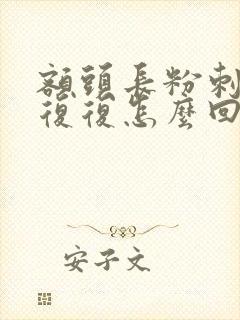 額頭長粉刺
復復怎麼回
安子文